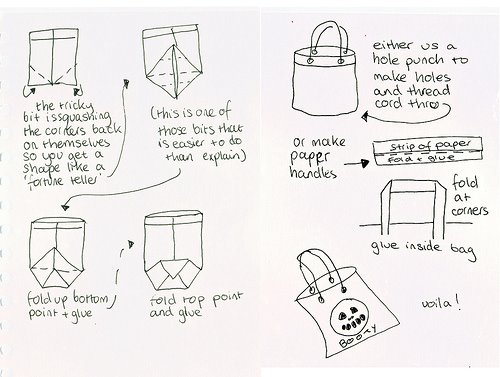 the tricky
bit issquashing
the corners back
on themselves
so you get a
shape like a
'fortune teller'
(this is one of
those bits that
is easier to do
than explain)
fold up bottom
point + glue
fold top point
and glue
either us a
hole punch to
make holes
and thread
cord thro
or make
paper
handles
strip of paper
fold + glue
fold
at
corners
glue inside bag
voila!
BOOTY